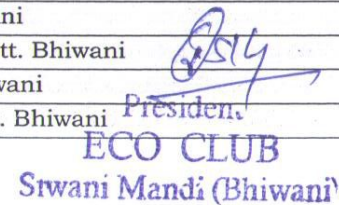 ni
tt. Bhiwani
wani
. Bhiwani
President
ECO CLUB
Siwani Mandi (Bhiwani)